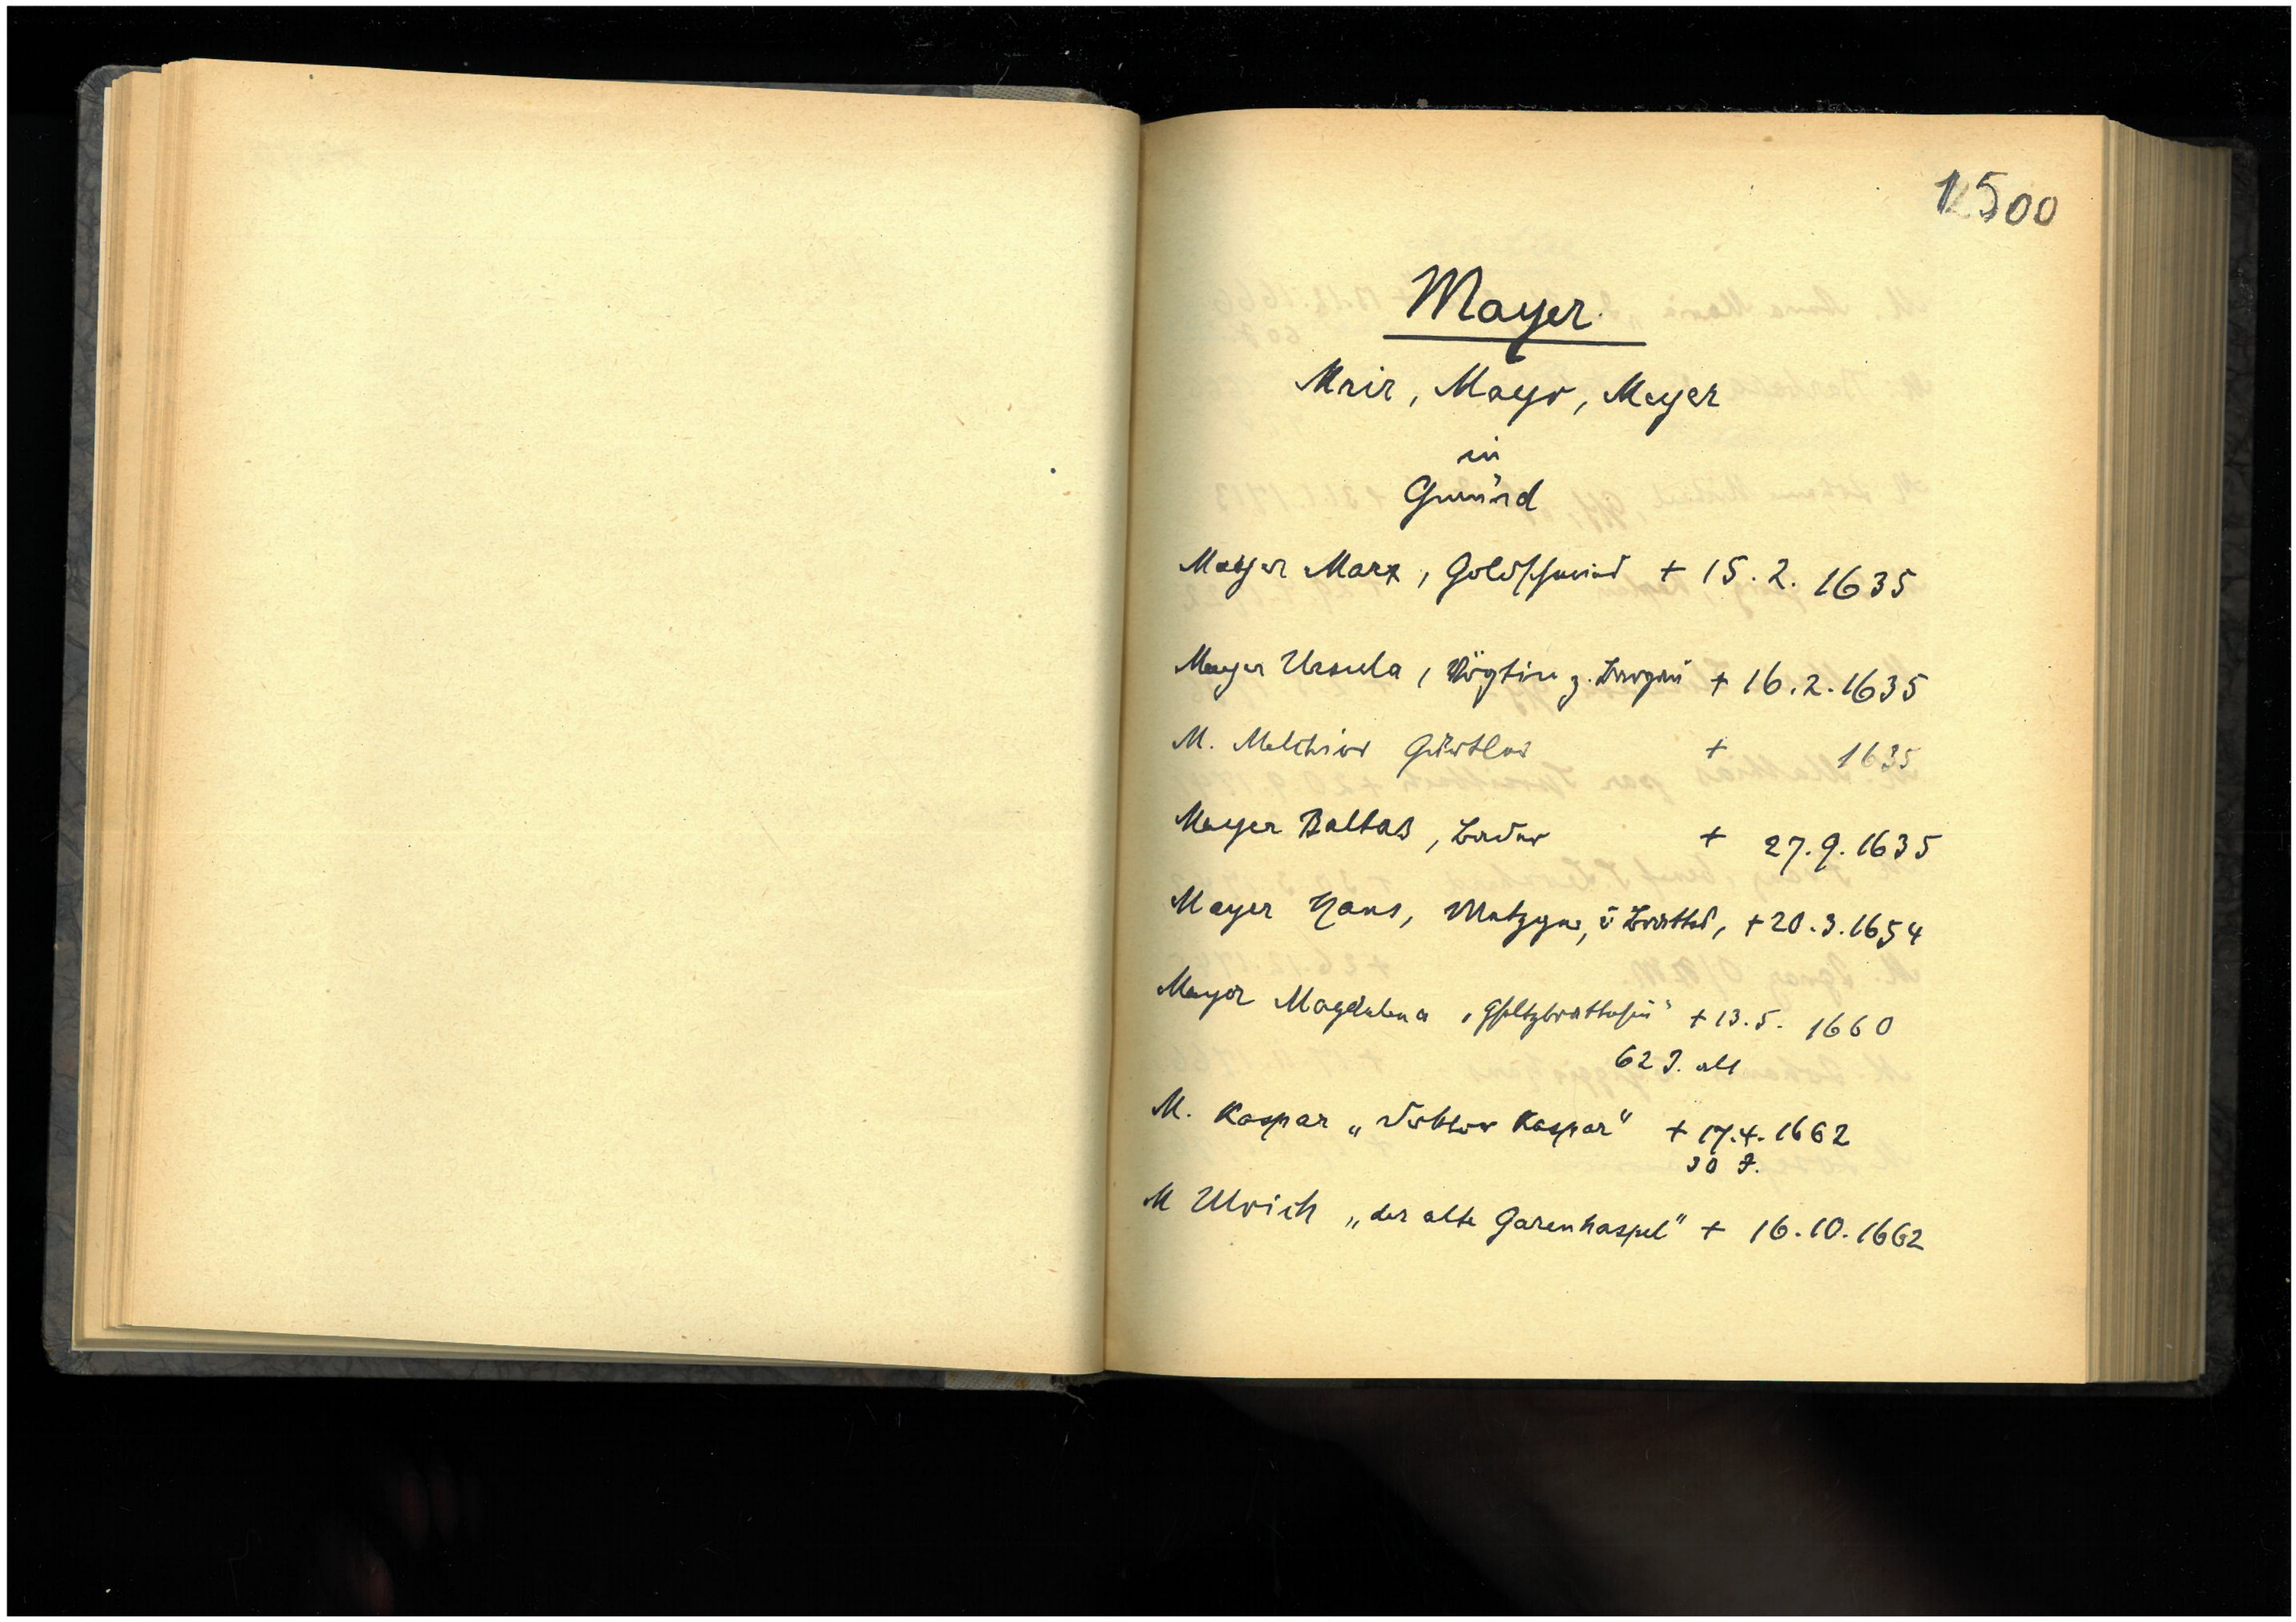 1500
Mayer
Mair, Mayr, Meyer
in
Gmünd
Mayer Marx, Goldschmied + 15. 2. 1635
Mayer Ursula, Vögtin z. + 16. 2. 1635
M. Melchior Gürtler + 1635
Mayer Baltas, Bader + 27. 9. 1635
Mayer Hans, Metzger, + 20. 3. 1654
Mayer Magdalena + 13. 5. 1660
62 J. alt
M. Kaspar „ Kaspar" + 17. 4. 1662
30 J.
M Ulrich „der alte Garenhaspel" + 16. 10. 1662